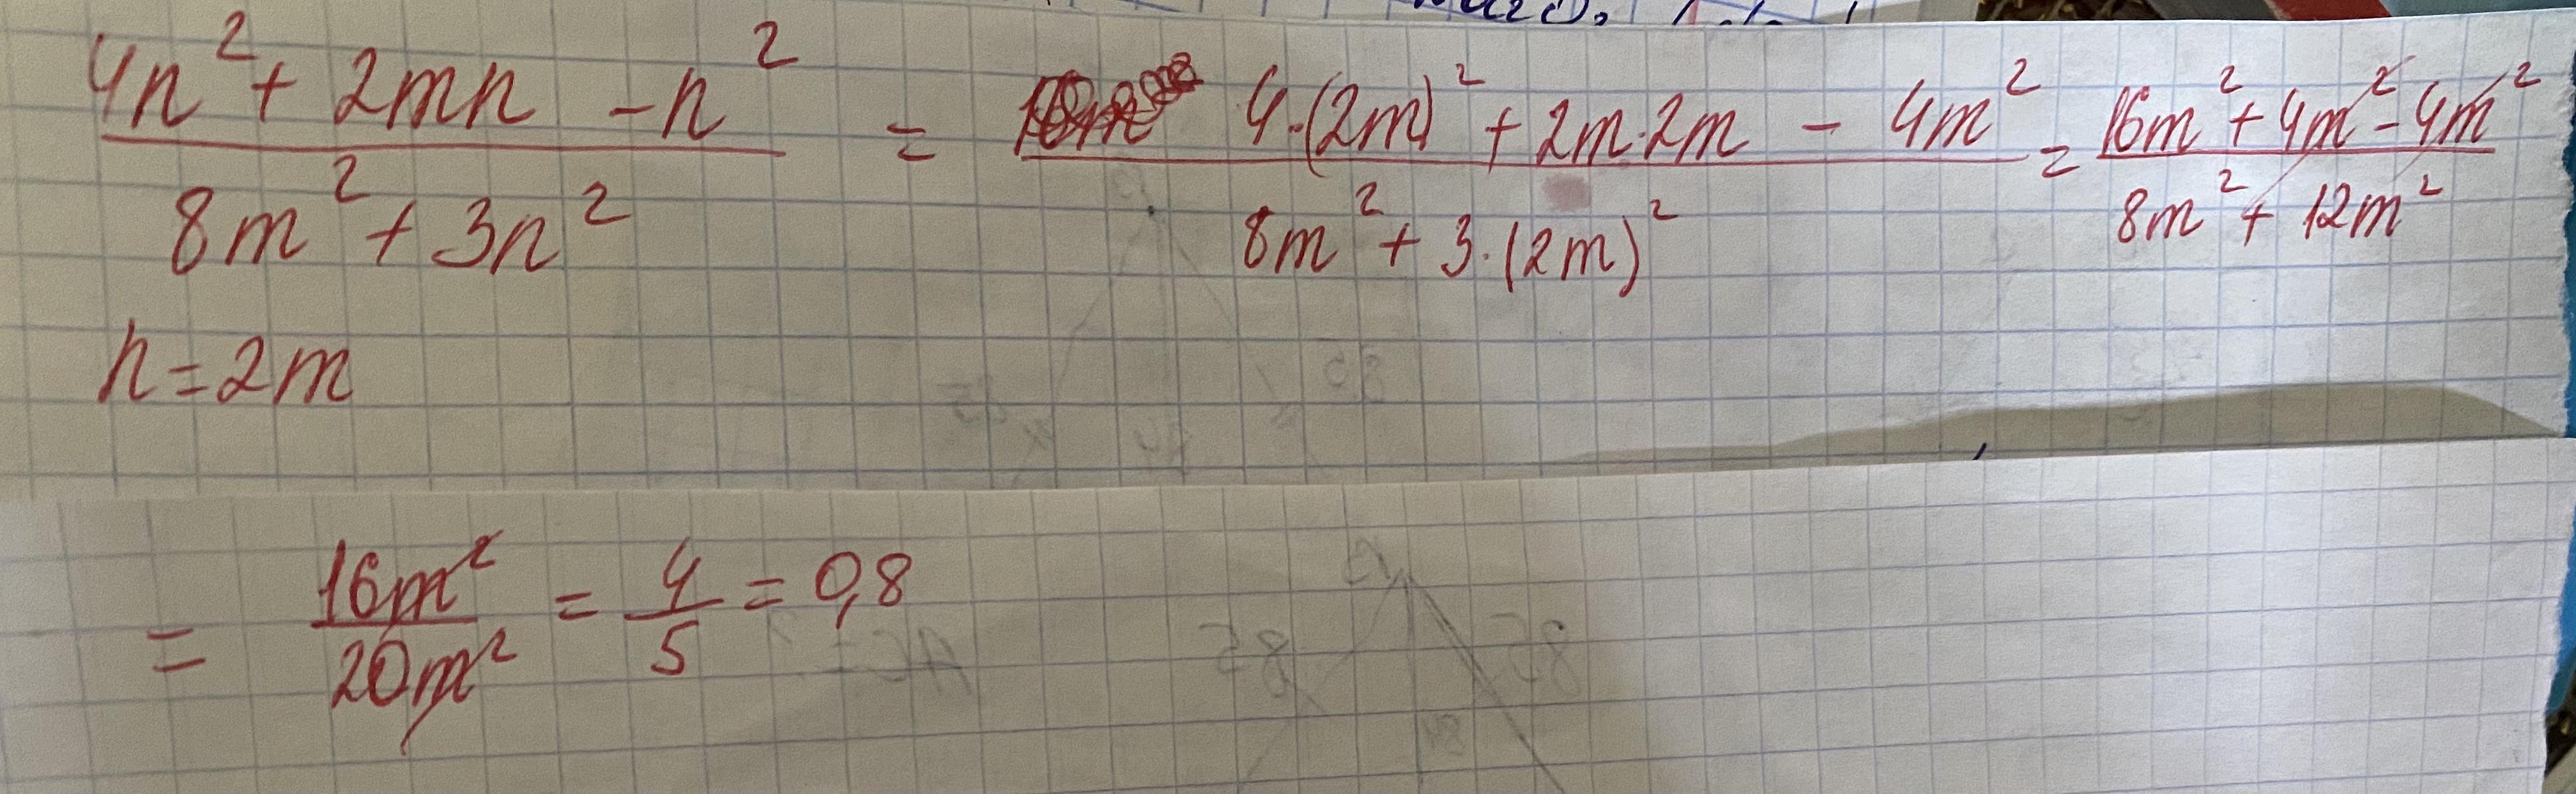 4n² + 2mn - n² / 8m² + 3n² = 4·(2m)² + 2m·2m - 4m² / 8m² + 3·(2m)² = 16m² + 4m² - 4m² / 8m² + 12m²
n = 2m
= 16m² / 20m² = 4/5 = 0,8